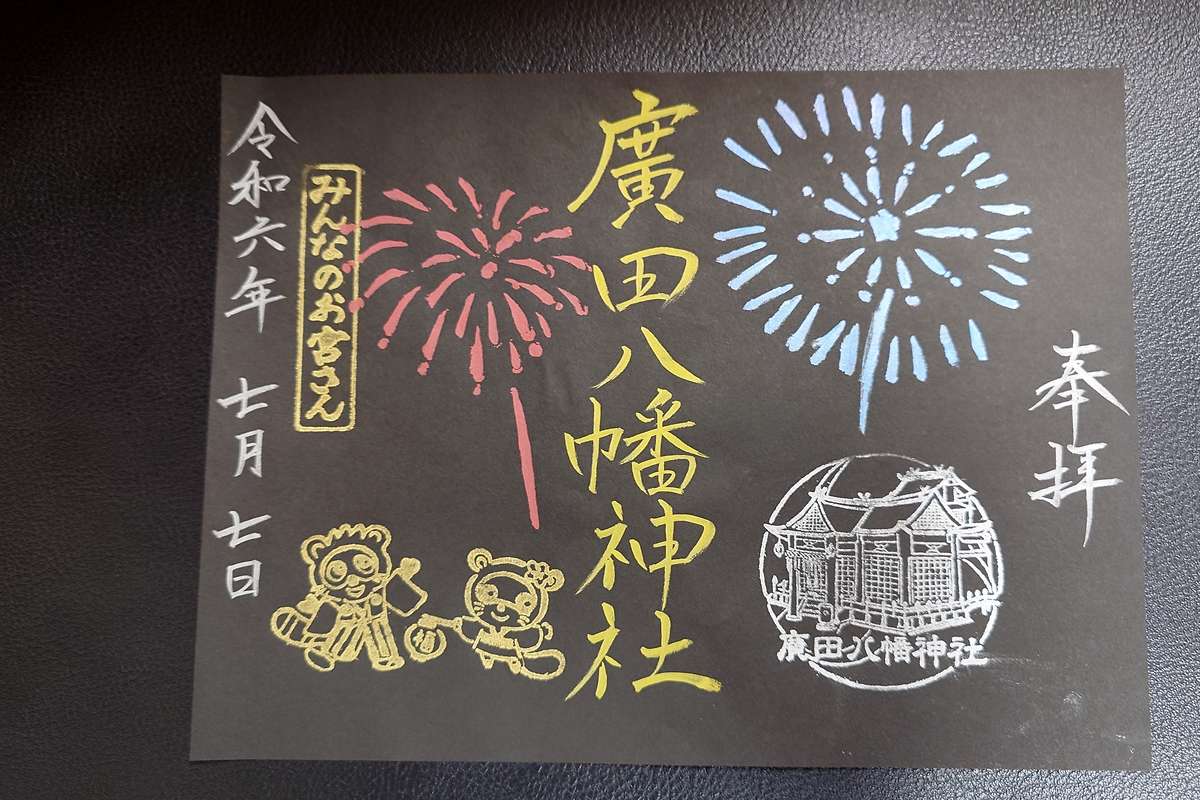 奉拝
廣田八幡神社
廣田八幡神社
みんなのお宮さん
令和六年 七月 七日